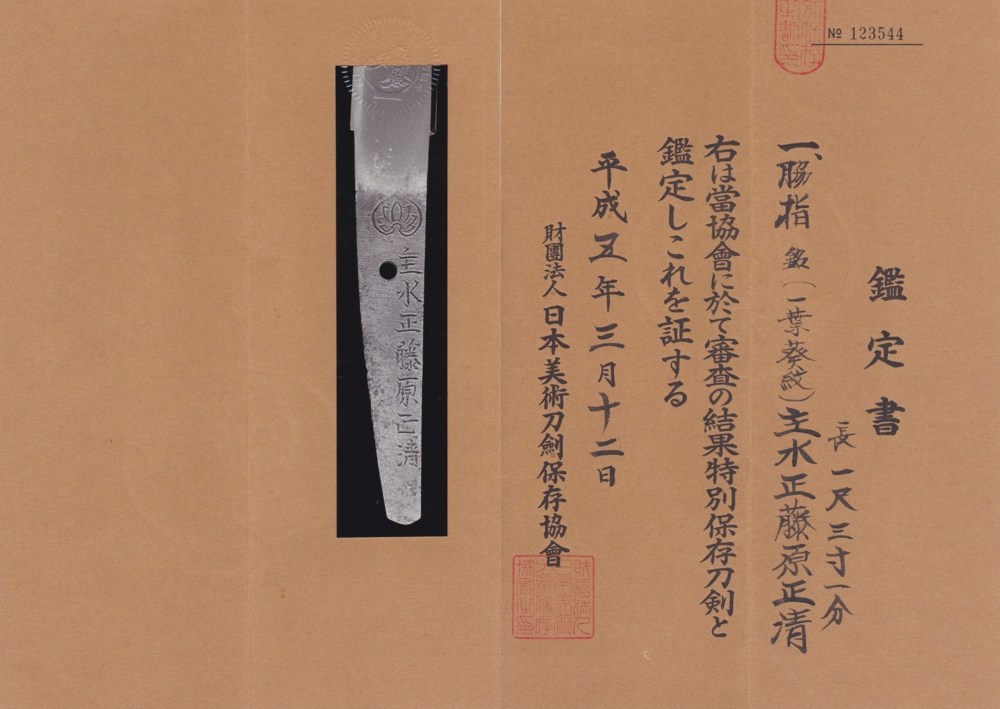 № 123544
鑑定書
長一尺三寸一分
一、脇指 銘(一葉葵紋)主水正藤原正清
右は當協會に於て審査の結果特別保存刀剣と
鑑定しこれを証する
平成五年三月十二日
財團法人日本美術刀劍保存協會
主水正藤原正清